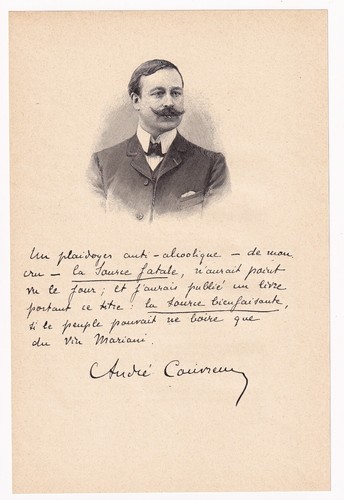 Un plaidoyer anti-alcoolique – de mon
cru – la Source fatale, n'aurait point
vu le jour; et j'aurais publié un livre
portant ce titre: la Source bienfaisante,
si le peuple pouvait ne boire que
du Vin Mariani.
André Couvreur